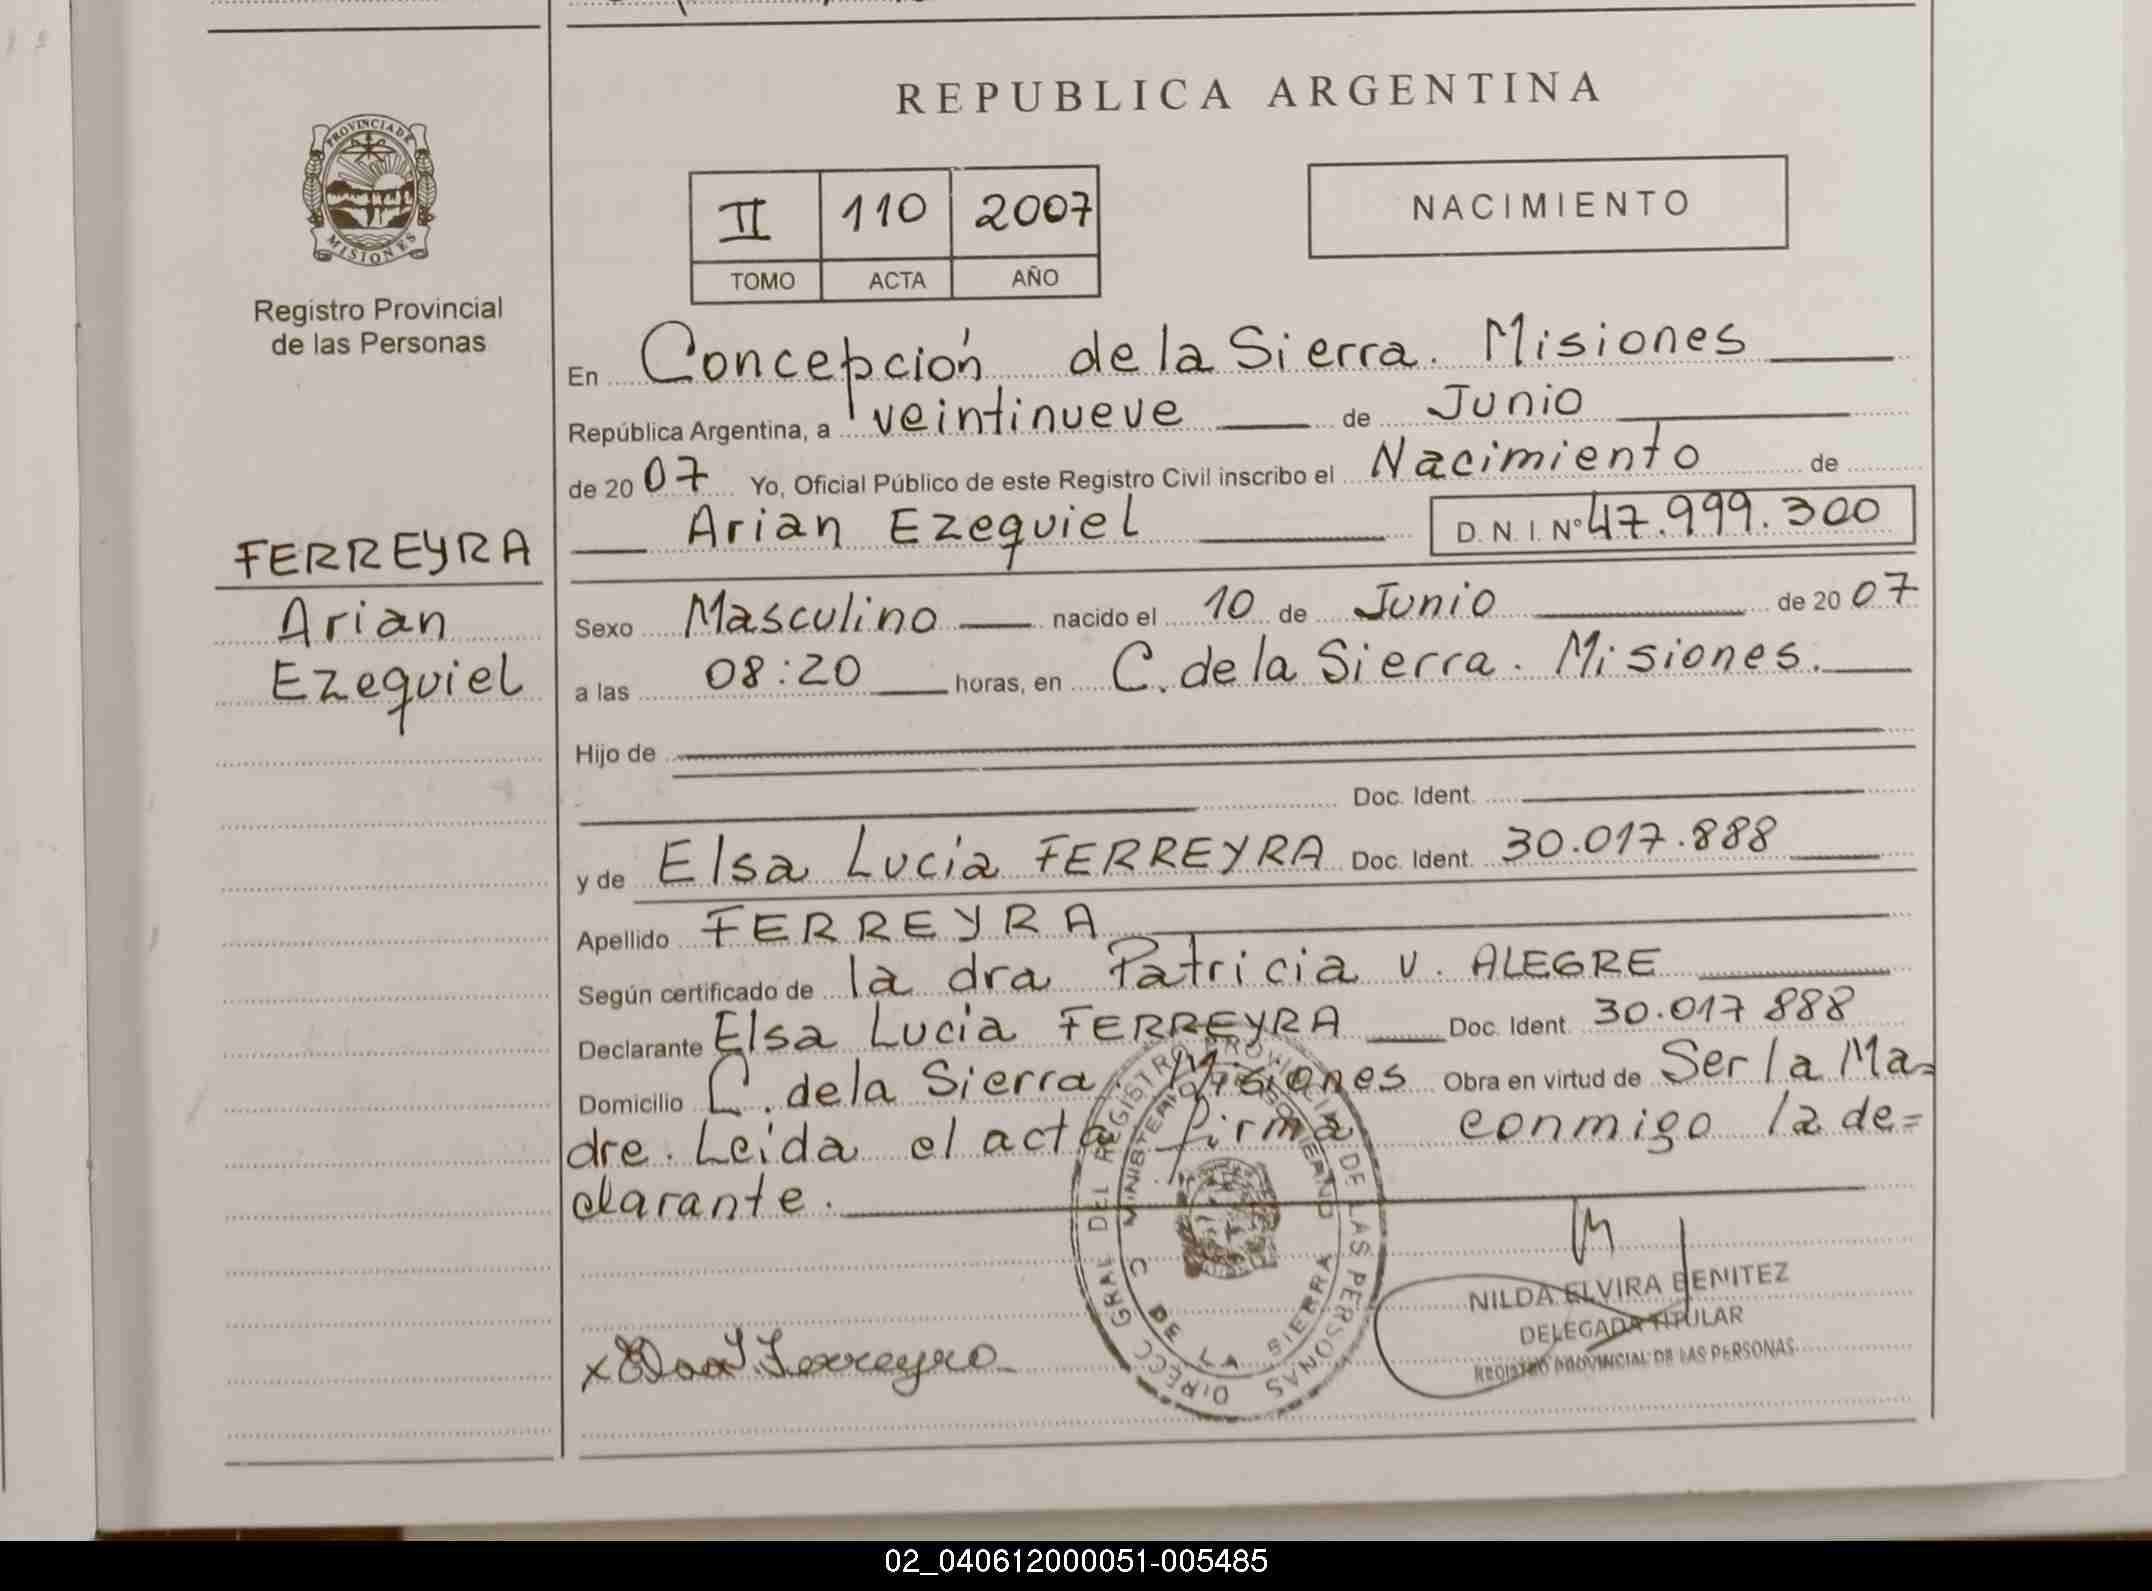 REPUBLICA ARGENTINA
PROVINCIA DE MISIONES
Registro Provincial
de las Personas
II 110 2007
TOMO ACTA AÑO
NACIMIENTO
En Concepción de la Sierra. Misiones
República Argentina, a veintinueve de Junio
de 2007 Yo, Oficial Público de este Registro Civil inscribo el Nacimiento de
Arian Ezequiel D.N.I. Nº 47.999.300
FERREYRA
Arian
Ezequiel
Sexo Masculino nacido el 10 de Junio de 2007
a las 08:20 horas, en C. de la Sierra. Misiones.
Hijo de
Doc. Ident.
y de Elsa Lucia FERREYRA Doc. Ident. 30.017.888
Apellido FERREYRA
Según certificado de la dra Patricia V. ALEGRE
Declarante Elsa Lucia FERREYRA Doc. Ident. 30.017 888
Domicilio C. de la Sierra. Misiones Obra en virtud de Ser la Ma=
dre. Leida el acta firma conmigo la de=
clarante.
DIRECC GRAL DEL REGISTRO PROVINCIAL DE LAS PERSONAS
MINISTERIO DE
C DE LA SIERRA
NILDA ELVIRA BENITEZ
DELEGADA TITULAR
REGISTRO PROVINCIAL DE LAS PERSONAS
x Elsa L Ferreyra
02_040612000051-005485